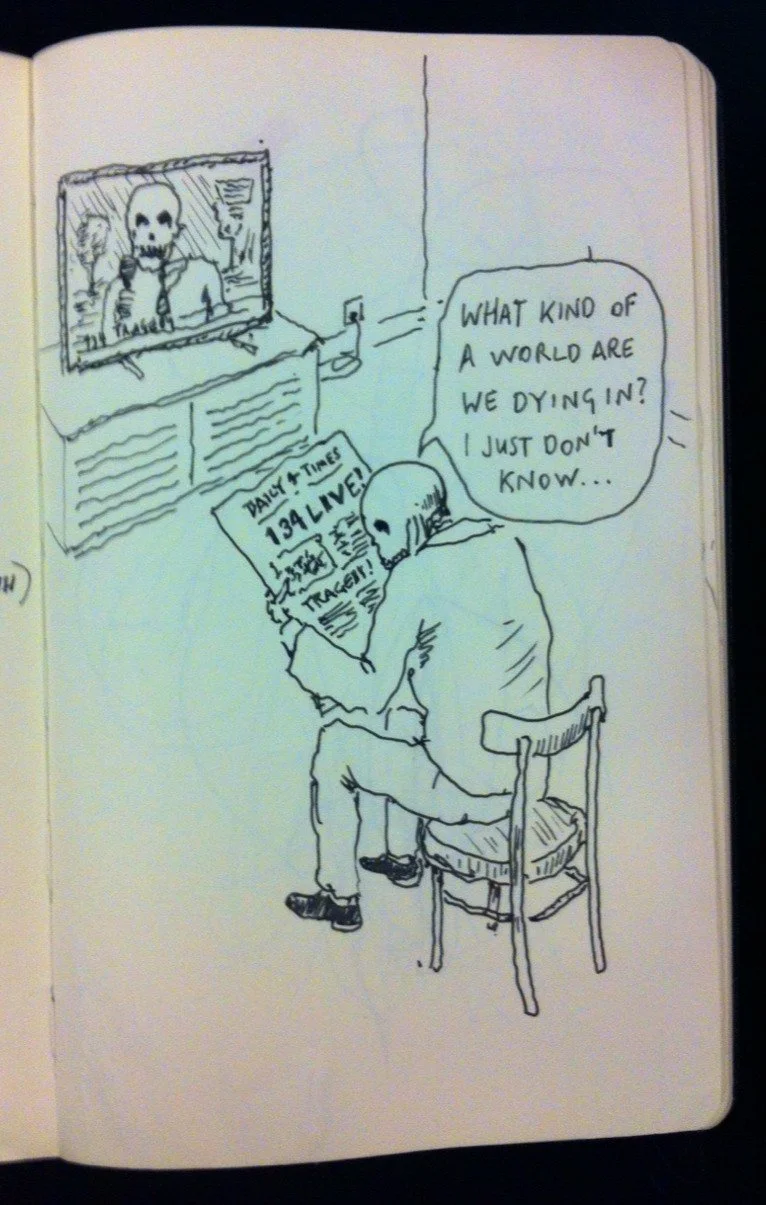 134 TRAGEDY
WHAT KIND OF
A WORLD ARE
WE DYING IN?
I JUST DON'T
KNOW...
DAILY & TIMES
134 LIVE!
TRAGEDY!